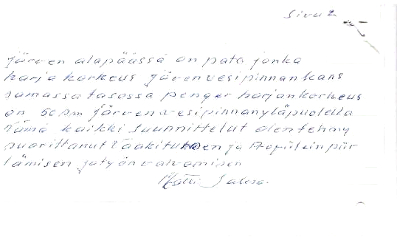 Sivu 2
Järven alapäässä on pato jonka
harja korkeus Järvenvesipinnan kans
samassa tasossa penger harjankorkeus
on 50 sm Järvenvesipinnanyläpuolella
Nämä kaikki suunnittelut olen tehny
suorittanut Vaakituksen ja Profiilein piir
tämisen ja työn valvomisen
Matti